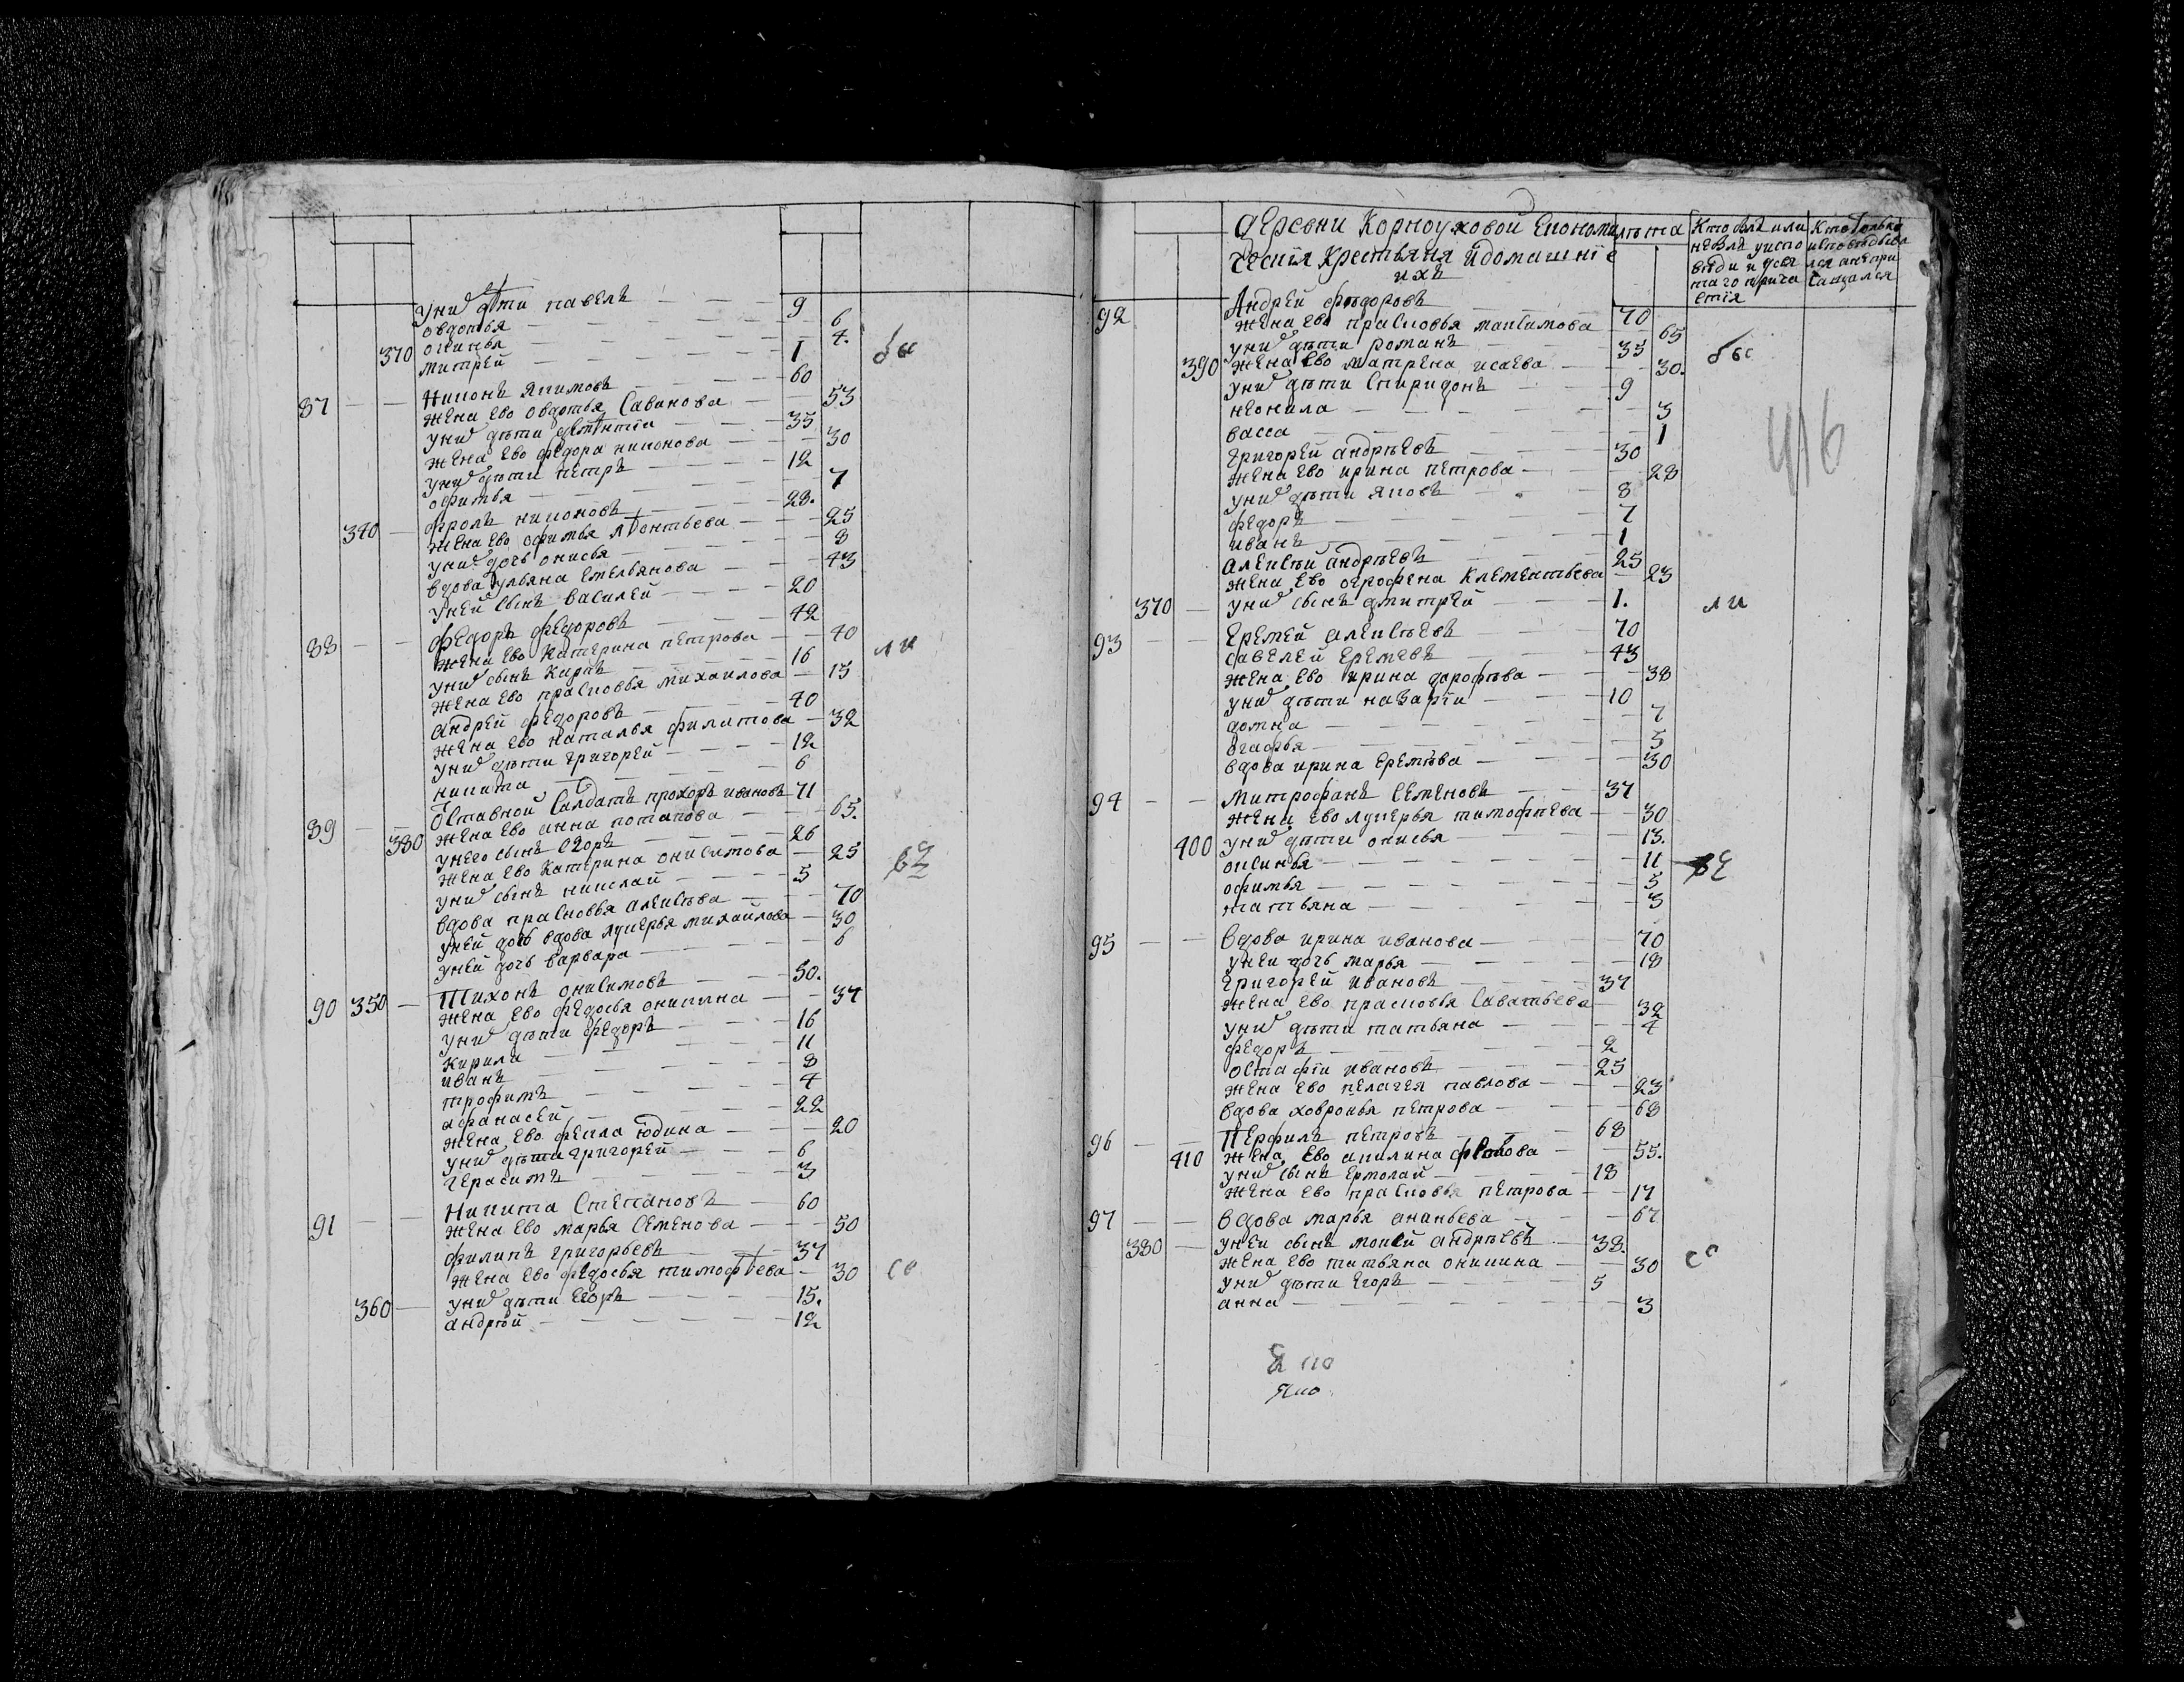 у них дѣти павелъ — 9
овдотья — 6
370 огинья — 4.
митрей — 1 бы
87 Никонъ якимовъ — 60
жена ево овдотья Савинова — 53
у них дѣти деѣнтіи — 35
жена ево федора никонова — 30
у них дѣти петръ — 12
офимья — 7
фролъ никоновъ — 28.
340 жена ево офимья леонтьева — 25
у них дочь онисья — 8
вдова ульяна емельянова — 43
у ней сынъ василей — 20
88 федоръ федоровъ — 42
жена ево катерина петрова — 40 ли
у них сынъ карпъ — 16
жена ево прасковья михаилова — 15
андрей федоровъ — 40
жена ево наталья филипова — 32
у них дѣти григорей — 12
никита — 6
89 Отставной Салдатъ прохоръ ивановъ 71
380 жена ево анна потапова — 65.
у него сынъ егоръ — 26
жена ево катерина онисимова — 25
у них сынъ николай — 5
вдова прасковья алексѣева — 70
у ней дочь вдова лукерья михаилова — 30
у ней дочь варвара — 6
90 350 Тихонъ онисимовъ — 50.
жена ево федосья оникина — 37
у них дѣти федоръ — 16
кирила — 11
иванъ — 8
трофимъ — 4
афанасей — 22
жена ево фекла юдина — 20
у них дѣти григорей — 6
герасимъ — 3
91 Никита Степановъ — 60
жена ево марья семенова — 50
филипъ григорьевъ — 37
жена ево федосья тимофѣева — 30 со
360 у них дѣти егоръ — 15.
андрѣй — 12
деревни Корноуховой Економи
ческія Крестьяня и домашніе
ихъ
лѣта
Кто былъ или
не былъ у испо
вѣди и у свя
таго прича
стія
Кто только
исповѣдыва
лся а не при
чащался
416
92 Андрей федоровъ — 70
жена ево прасковья максимова — 65
у них дѣти романъ — 35 бы
390 жена ево матрена исаева — 30.
у них дѣти спиридонъ — 9
неонила — 3
васса — 1
григорей андрѣевъ — 30
жена ево ирина петрова — 28
у них дѣти яковъ — 8
федоръ — 7
иванъ — 1
алексѣй андрѣевъ — 25
жена ево огрофена клементьева — 23
370 у них сынъ дмитрей — 1. ли
93 Еремей алексѣевъ — 70
савелей еремѣевъ — 43
жена ево ирина дорофѣева — 38
у них дѣти назарій — 10
домна — 7
огафья — 5
вдова ирина еремѣева — 30
94 Митрофанъ Семеновъ — 37
жена ево лукерья тимофѣева — 30
400 у них дѣти онисья — 13.
оксинья — 11
офимья — 5
татьяна — 3
95 вдова ирина иванова — 70
у ней дочь марья — 18
григорей ивановъ — 37
жена ево прасковья саватьева — 32
у них дѣти татьяна — 4
федоръ — 2
остафіи ивановъ — 25
жена ево пелагея павлова — 23
вдова ховронья петрова — 68
96 Перфилъ петровъ — 68
410 жена ево акилина — 55.
у них сынъ ермолай — 18
жена ево прасковья петрова — 17
97 вдова марья ананьева — 67
380 у ней сынъ андрѣевъ — 38. со
жена ево татьяна оникина — 30
у них дѣти егоръ — 5
анна — 3